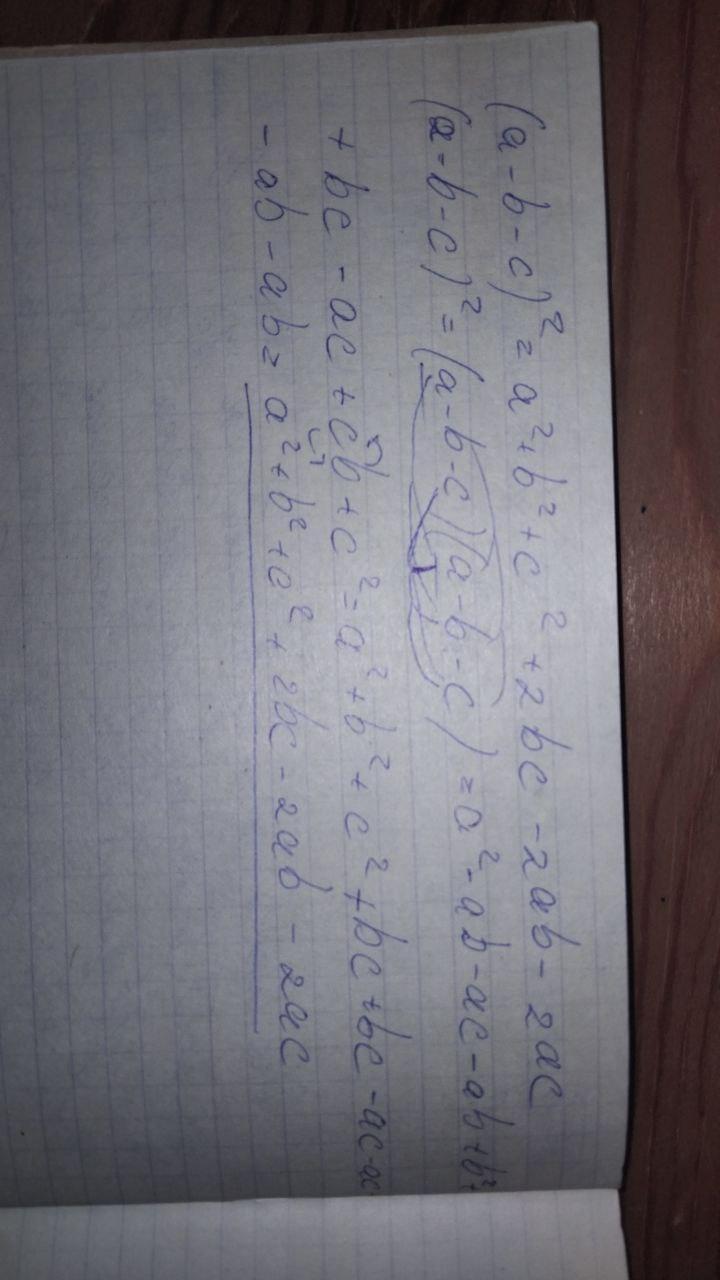 (a-b-c)² = a²+b²+c²+2bc-2ab-2ac
(a-b-c)² = (a-b-c)(a-b-c) = a²-ab-ac-ab+b²+
+bc-ac+cb+c²=a²+b²+c²+bc+bc-ac-ac
-ab-ab= a²+b²+c²+2bc-2ab-2ac